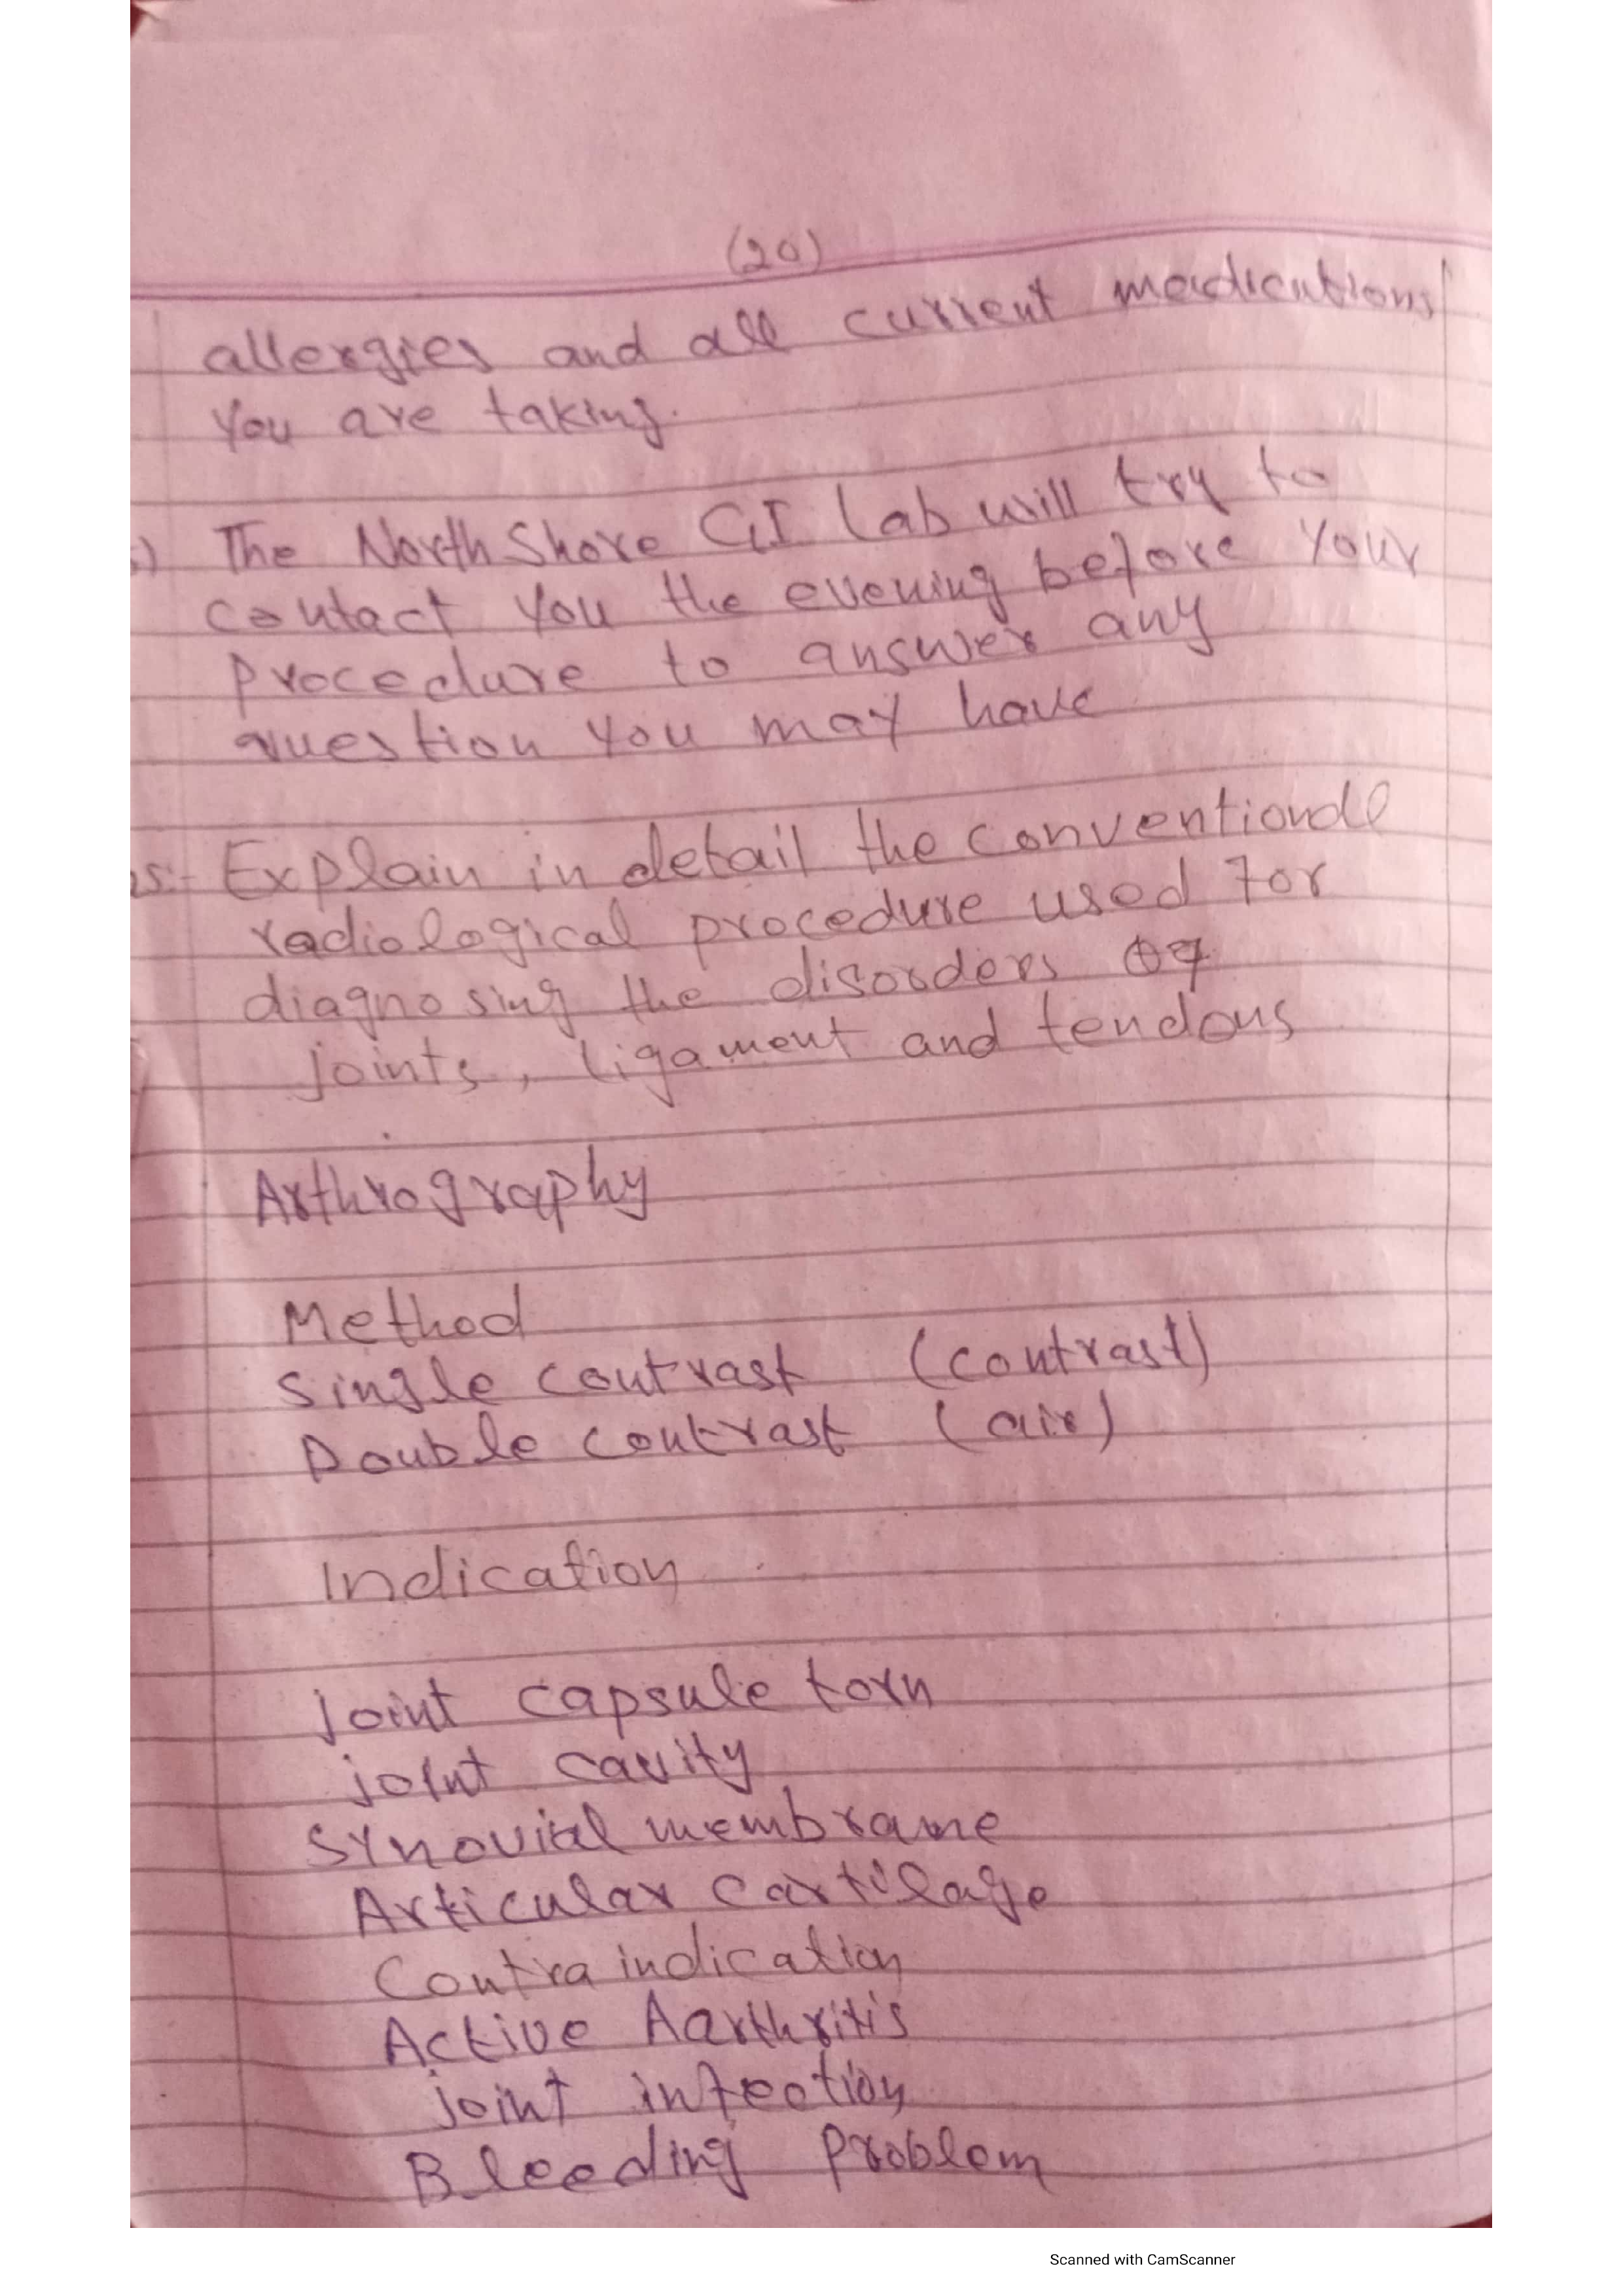 (20)
allergies and all current medications
you are taking.
) The NorthShore GI Lab will try to
contact you the evening before your
procedure to answer any
question you may have
s:- Explain in detail the conventional
radiological procedure used for
diagnosing the disorders of
joints, ligament and tendons
Arthrography
Method
Single contrast (contrast)
Double contrast (air)
Indication
joint capsule torn
joint cavity
Synovial membrame
Articular cartilage
Contra indication
Active Aarthritis
joint infection
Bleeding Problem
Scanned with CamScanner